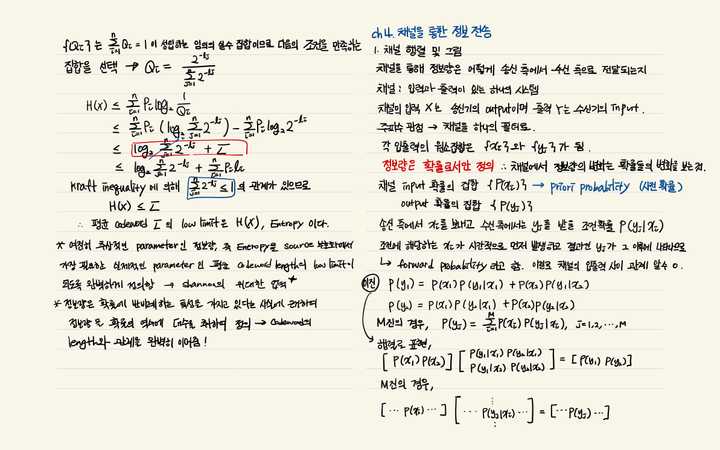 {Qi}는 ∑_{i=1}^{n} Qi = 1 이 성립하는 임의의 실수 집합이므로 다음의 조건을 만족하는
집합을 선택 → Qi = 2^{-li} / ∑_{j=1}^{n} 2^{-lj}
H(x) ≤ ∑_{i=1}^{n} Pi log₂ 1/Qi
≤ ∑_{i=1}^{n} Pi (log₂ ∑_{j=1}^{n} 2^{-lj}) - ∑_{i=1}^{n} Pi log₂ 2^{-li}
≤ log₂ ∑_{j=1}^{n} 2^{-lj} + L̄
≤ log₂ ∑_{j=1}^{n} 2^{-lj} + ∑_{i=1}^{n} Pi li
Kraft inequality 에 의해 ∑ 2^{-li} ≤ 1 의 관계가 있으므로
H(x) ≤ L̄
∴ 평균 codeword L̄ 의 low limit은 H(x), Entropy 이다.
* 여전히 추상적인 parameter인 정보량, 즉 Entropy로 source 부호화에서
가장 필요한 실제적인 parameter인 평균 codeword length의 low limit이
되도록 완벽하게 정의함 → shannon의 위대한 업적 *
* 정보량은 확률에 반비례하는 특성을 가지고 있다는 사실에 근거하여
정보량은 확률의 역수에 log를 취하여 정의 → codeword의
length와 관계를 완벽히 이어줌!
ch4. 채널을 통한 정보 전송
1. 채널 행렬 및 그림
채널을 통해 정보량은 어떻게 송신 측에서 수신 측으로 전달되는지
채널 : 입력과 출력이 있는 하나의 시스템
채널의 입력 X는 송신기의 output이며 출력 Y는 수신기의 Input.
주파수 관점 → 채널을 하나의 필터로.
각 입출력의 원소집합은 {xi}와 {yj}가 됨.
정보량은 확률로서만 정의 ∴ 채널에서 정보량의 변화는 확률들의 변화를 보는 것.
채널 input 확률의 집합 {P(xi)} → priori probability (사전 확률)
output 확률의 집합 {P(yj)}
송신 측에서 xi를 보내고 수신 측에서는 yj를 받을 조건확률 P(yj|xi)
조건에 해당하는 xi가 시간적으로 먼저 발생하고 결과인 yj가 그 이후에 나타나므로
↳ forward probability 라고 함. 이걸로 채널의 입출력 사이 관계 알 수 O.
이진 P(y₁) = P(x₁)P(y₁|x₁) + P(x₂)P(y₁|x₂)
P(y₂) = P(x₁)P(y₂|x₁) + P(x₂)P(y₂|x₂)
M진의 경우, P(yj) = ∑_{i=1}^{M} P(xi)P(yj|xi), j=1,2,…,M
행렬로 표현,
[P(x₁) P(x₂)] [P(y₁|x₁) P(y₂|x₁)
P(y₁|x₂) P(y₂|x₂)] = [P(y₁) P(y₂)]
M진의 경우,
[… P(xi) …] [… P(yj|xi) …] = [… P(yj) …]